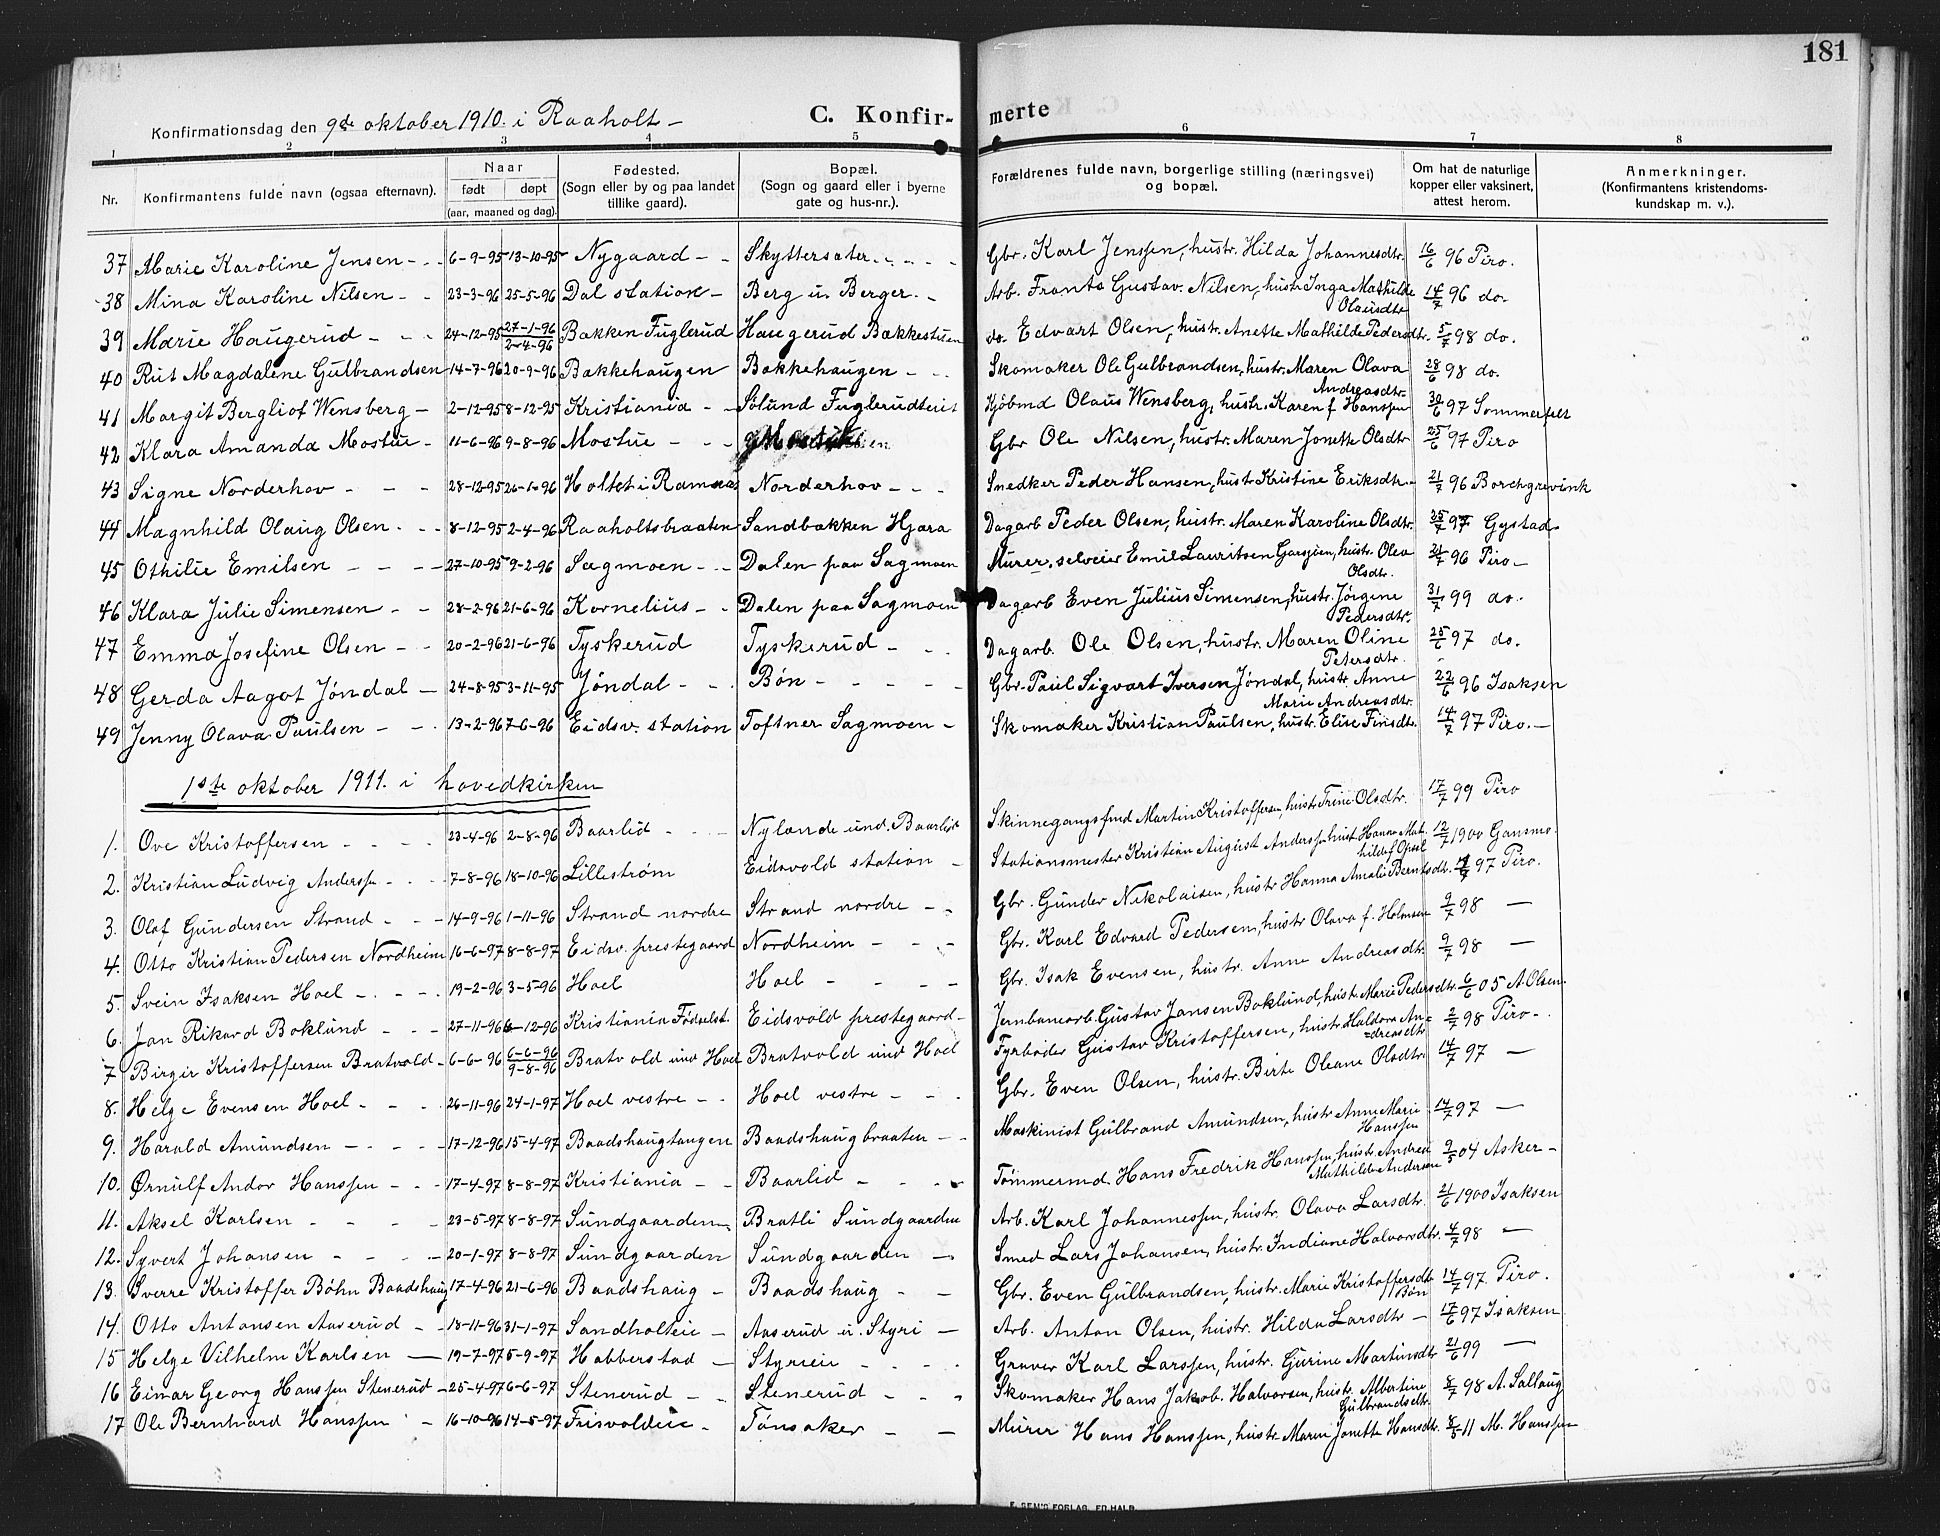 181
Konfirmationsdag den 9de oktober 1910. i Raaholt —
C. Konfir- merte
1 2 3 4 5 6 7 8
Nr.
Konfirmantens fulde navn (ogsaa efternavn).
Naar
født døpt
(aar, maaned og dag).
Fødested.
(Sogn eller by og paa landet
tillike gaard).
Bopæl.
(Sogn og gaard eller i byerne
gate og hus-nr.).
Forældrenes fulde navn, borgerlige stilling (næringsvei)
og bopæl.
Om hat de naturlige
kopper eller vaksinert,
attest herom.
Anmerkninger.
(Konfirmantens kristendoms-
kundskap m. v.).
37 Marie Karoline Jensen - - 6-9-95 13-10-95 Nygaard - - Skyttersæter - - - - Gbr. Karl Jenssen, hustr. Hilda Johannesdtr. 16/6 96 Piro.
38 Mina Karoline Nilsen - - 23-3-96 25-5-96 Dal station - Berg u. Berger. - Arb. Frants Gustav. Nilsen, hustr. Inga Mathilde Olausdtr 14/7 96 do.
39 Marie Haugerud - - - 24-12-95 27-1-96 2-4-96 Bakken Fuglerud Haugerud Bakkestuen do. Edvart Olsen, hustr. Anette Mathilde Pedersdtr. 5/7 98 do.
40 Rut Magdalene Gulbrandsen 14-7-96 20-9-96 Bakkehaugen Bakkehaugen - - Skomaker Ole Gulbrandsen, hustr. Maren Olava Andreasdtr. 28/6 98 do.
41 Margit Bergliof Wensberg - 2-12-95 8-12-95 Kristiania - - Sølund Fuglerudteiet Kjøbmd Olaus Wensberg, hustr. Karen f Hanssen 30/6 97 Sommerfelt
42 Klara Amanda Mostue - 11-6-96 9-8-96 Mostue - - - Gbr Ole Nilsen, hustr. Maren Jonette Olsdtr 25/6 97 Piro
43 Signe Norderhov - - - 28-12-95 26-1-96 Holtet i Ramsaa Norderhov - - - Snedker Peder Hansen, hustr. Kristine Eriksdtr - 21/7 96 Borchgrevink
44 Magnhild Olaug Olsen - - 8-12-95 2-4-96 Raaholtsbraaten Sandbakken Hjæra Dagarb Peder Olsen, hustr. Maren Karoline Olsdtr. 25/7 97 Gystad
45 Othilie Emilsen - - - 27-10-95 9-2-96 Sagmoen - - Dalen paa Sagmoen Murer, selveier Emil Lauritsen Gaasjøen, hustr. Olea Olsdtr. 21/7 96 Piro -
46 Klara Julie Simensen - - 28-2-96 21-6-96 Kornelius - - Dalen paa Sagmoen Dagarb Even Julius Simensen, hustr. Jørgine Pedersdtr. 31/7 99 do.
47 Emma Josefine Olsen - - 20-2-96 21-6-96 Tyskerud Tyskerud - - - Dagarb. Ole Olsen, hustr. Maren Oline Petersdtr. 25/6 97 do.
48 Gerda Aagot Jøndal - 24-8-95 3-11-95 Jøndal - - Bøn - - - - - Gbr. Paul Sigvart Iversen Jøndal, hustr. Anne Marie Andreasdtr. 22/6 96 Isaksen
49 Jenny Olava Paulsen - - 13-2-96 7-6-96 Eidsv. station Toftner Sagmoen - Skomaker Kristian Paulsen, hustr. Elise Finsdtr. 14/7 97 Piro. -
1ste oktober 1911. i hovedkirken
1. Ove Kristoffersen - - - - 23-4-96 2-8-96 Baarlid - - - Nylænde und. Baarlid Skinnegangsfmd Martin Kristoffersen, hustr. Trine Olsdtr. 17/7 99 Piro
2. Kristian Ludvig Anderssen - - 7-8-96 18-10-96 Lillestrøm Eidsvold station - Stationsmester Kristian August Anderssen hustr. Hanna Mathilde f Opsal 12/7 1900 Gansmo.
3. Olaf Gundersen Strand - - - 14-9-96 1-11-96 Strand nordre Strand nordre - - Gbr. Gunder Nikolaisen, hustr Hanna Amalie Berntsdtr. 97 Piro.
4. Otto Kristian Pedersen Nordheim 16-6-97 8-8-97 Eidsv. prestegaard Nordheim - - - Gbr. Karl Edvard Pedersen, hustr Olava f. Holmsen 9/7 98 —
5. Svein Isaksen Hoel - - - - 19-2-96 3-5-96 Hoel Hoel - - - - Gbr. Isak Evensen, hustr. Anne Andreasdtr. 9/7 98 —
6. Jan Rikard Boklund - - - 27-11-96 6-12-96 Kristiania Fødselsst. Eidsvold prestegaard - Jernbanearb. Gustav Jansen Boklund, hustr. Marie Pedersdtr 6/6 05 A. Olsen.
7 Birger Kristoffersen Bratvold - 6-6-96 6-6-96 9-8-96 Bratvold und Hoel Bratvold und Hoel Fyrbøder Gustav Kristoffersen, hustr. Haldora An=dreasdtr 2/7 98 Piro - .
8. Helge Evensen Hoel - - - 26-11-96 24-1-97 Hoel vestre - - Hoel vestre - - - Gbr. Even Olsen, hustr. Birte Oleane Olsdtr. 14/7 97 —
9. Harald Amundsen - - - - 17-12-96 15-4-97 Baadshaugtangen Baadshaugbraaten - - Maskinist Gulbrand Amundsen, hustr. Anne Marie Hanssen 14/7 97 —
10. Ørnulf Andor Hanssen - - - 17-4-97 8-8-97 Kristiania - - Baarlid - - - - Tømmermd. Hans Fredrik Hanssen, hustr. Andrea Mathilde Andersen 9/5 04 Asker -
11. Aksel Karlsen - - - - 23-5-97 8-8-97 Sundgaarden Bratli Sundgaarden Arb. Karl Johannessen, hustr. Olava Larsdtr. 21/6 1900 Isaksen
12. Syvert Johansen - - - - 20-1-97 8-8-97 Sundgaarden Sundgaarden - Smed Lars Johansen, hustr. Indiane Halvorsdtr. 4/7 98 —
13. Sverre Kristoffer Bøhn Baadshaug 17-4-96 21-6-96 Baadshaug - Baadshaug - - Gbr. Even Gulbrandsen, hustr. Marie Kristoffersdtr Bøn 14/7 97. Piro.
14. Otto Antonsen Aaserud - - 18-11-96 31-1-97 Sandholteie - Aaserud u. Styri - Arb. Anton Olsen, hustr. Hilda Larsdtr - 17/6 97 Isaksen
15 Helge Vilhelm Karlsen — 19-7-97 5-9-97 Habberstad - Styrieie - - - - Graver Karl Larssen, hustr. Gurine Martinsdtr 21/6 99 —
16 Einar Georg Hanssen Stenerud - 25-4-97 6-6-97 Stenerud - - Stenerud - - - Skomaker Hans Jakob. Halvorsen, hustr. Albertine Gulbrandsdtr. 8/7 98 A. Sallaug
17 Ole Bernhard Hanssen - 16-10-96 14-5-97 Frisvoldeie - Tønsaker - - Murer Hans Hanssen, hustr. Maren Jonette Hansdtr. 8/5 11 M. Hanssen